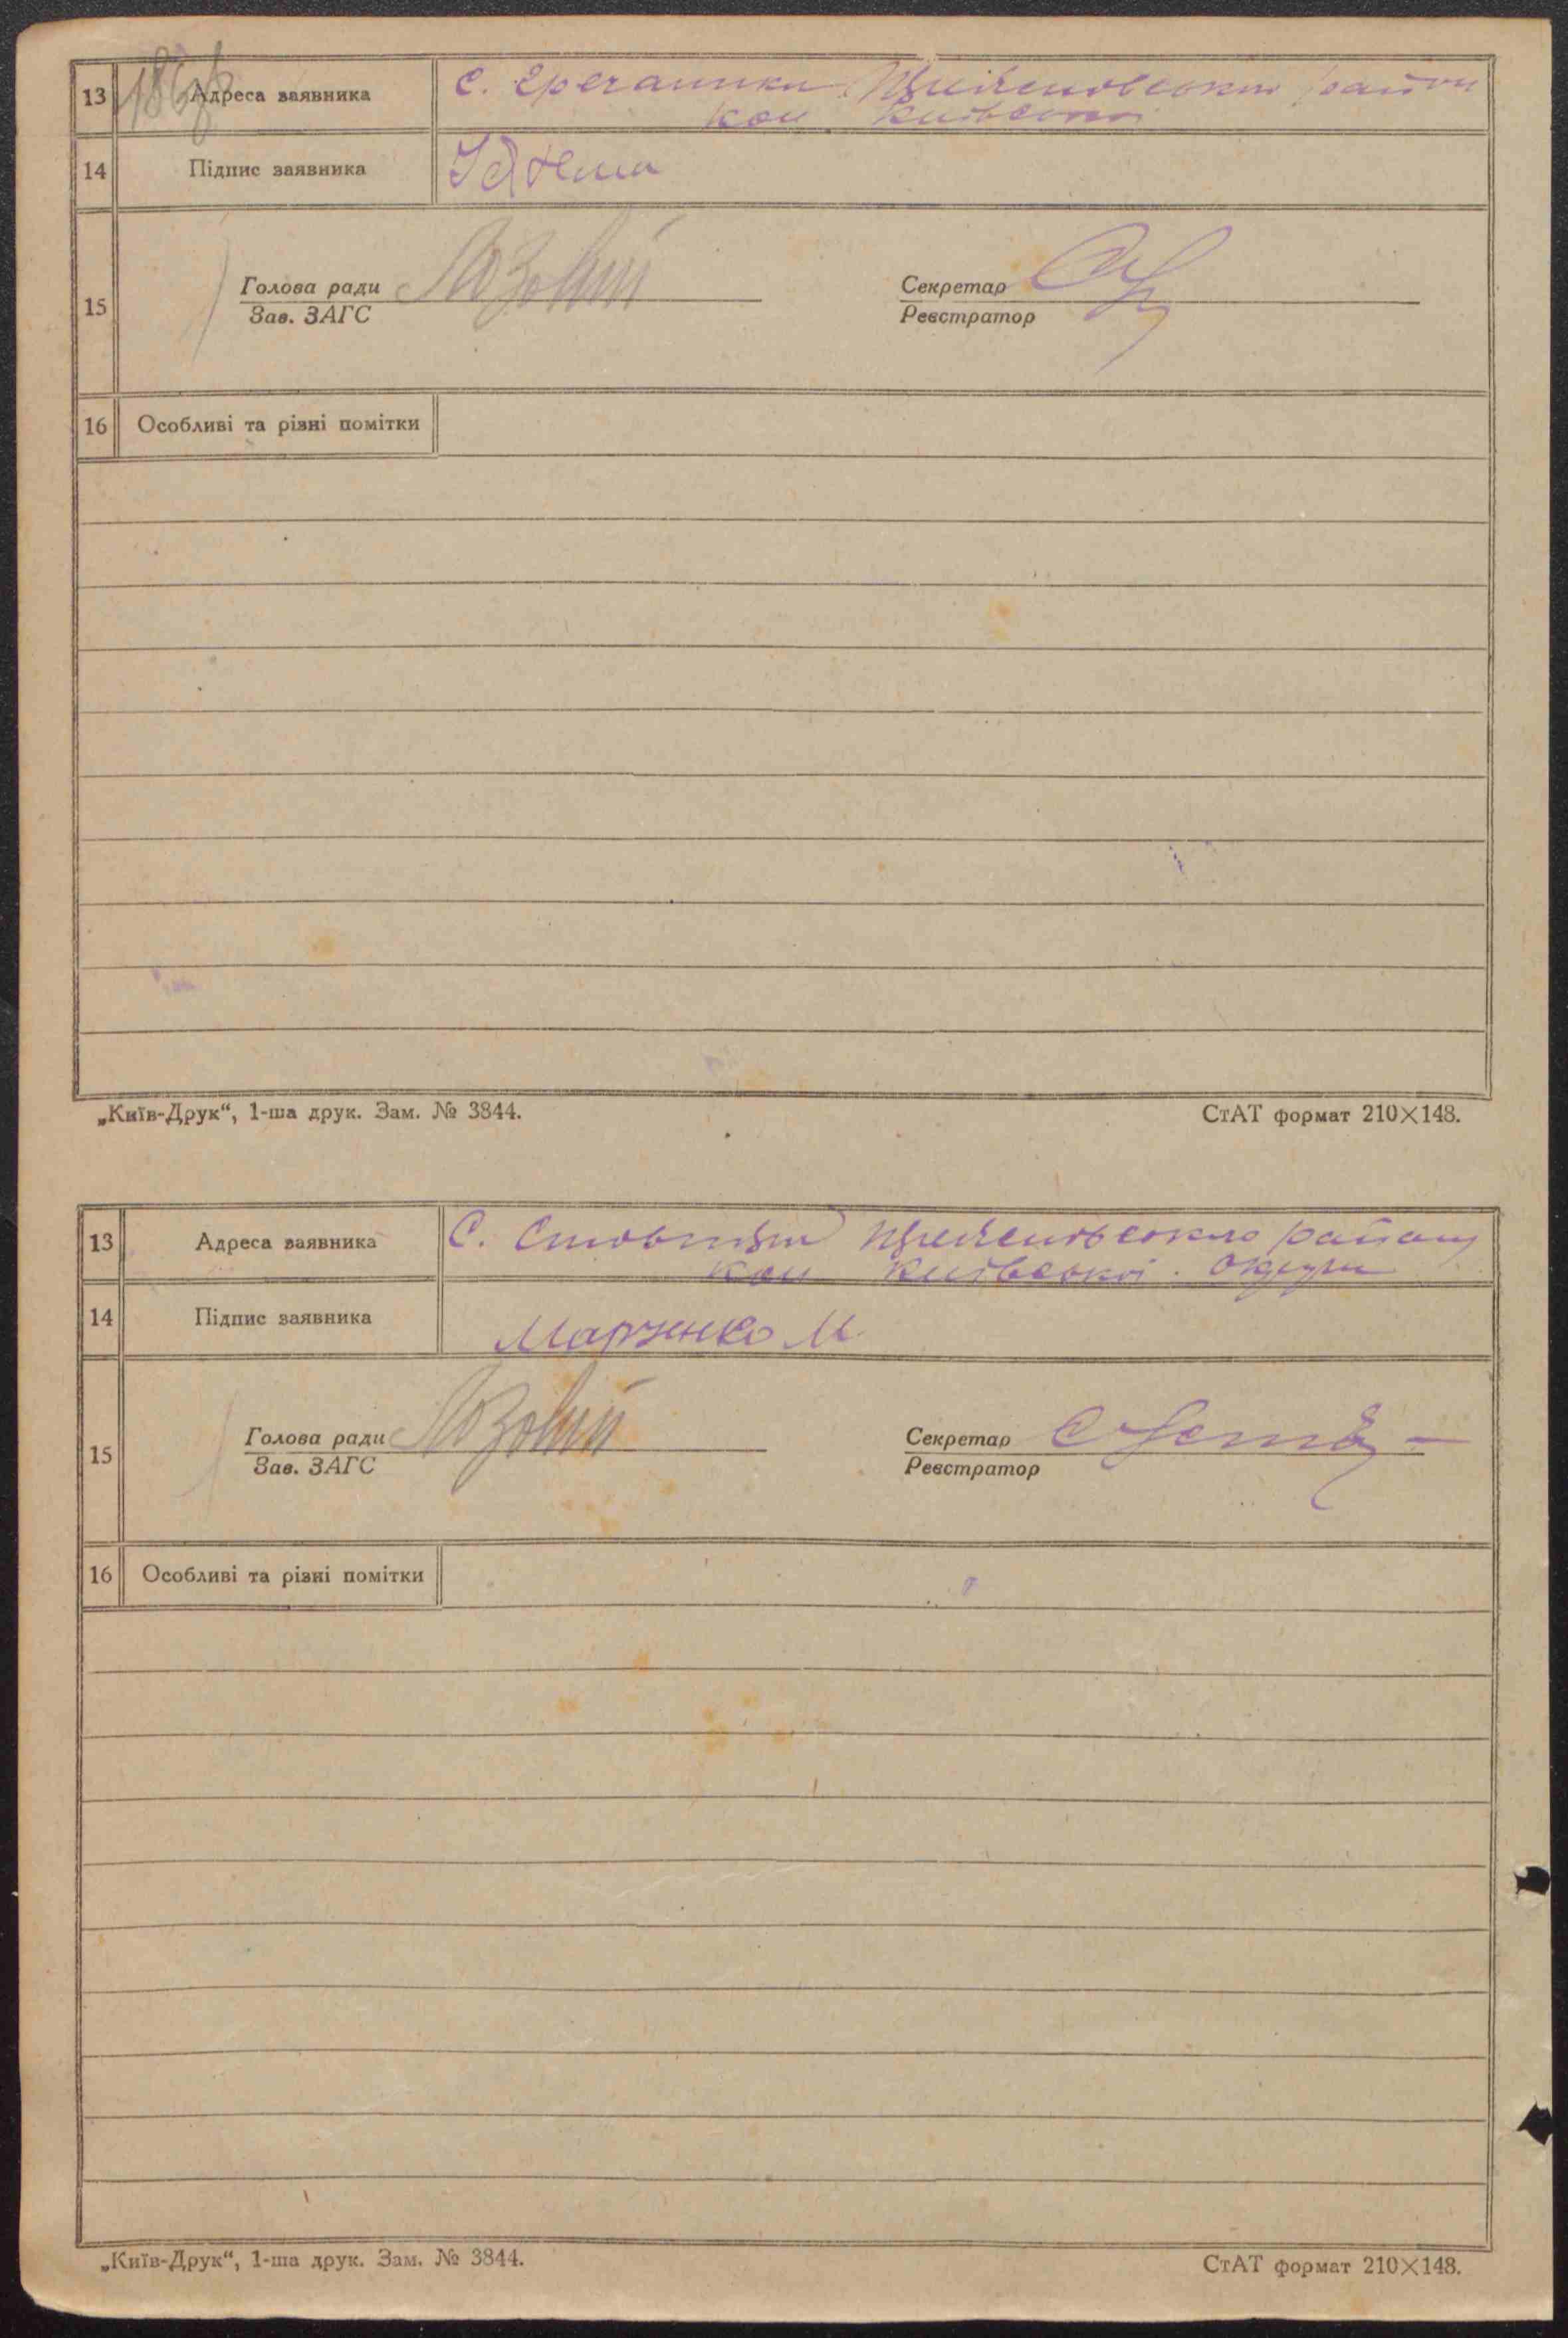 13 Адреса заявника С. Єрчаники району
Кол Київської
14 Підпис заявника
15 Голова ради Лозовий Секретар
Зав. ЗАГС Реєстратор
16 Особливі та різні помітки
„Київ-Друк“, 1-ша друк. Зам. № 3844. СтАТ формат 210×148.
13 Адреса заявника С. району
Кол Київської округи
14 Підпис заявника Марченко М.
15 Голова ради Лозовий Секретар
Зав. ЗАГС Реєстратор
16 Особливі та різні помітки
„Київ-Друк“, 1-ша друк. Зам. № 3844. СтАТ формат 210×148.